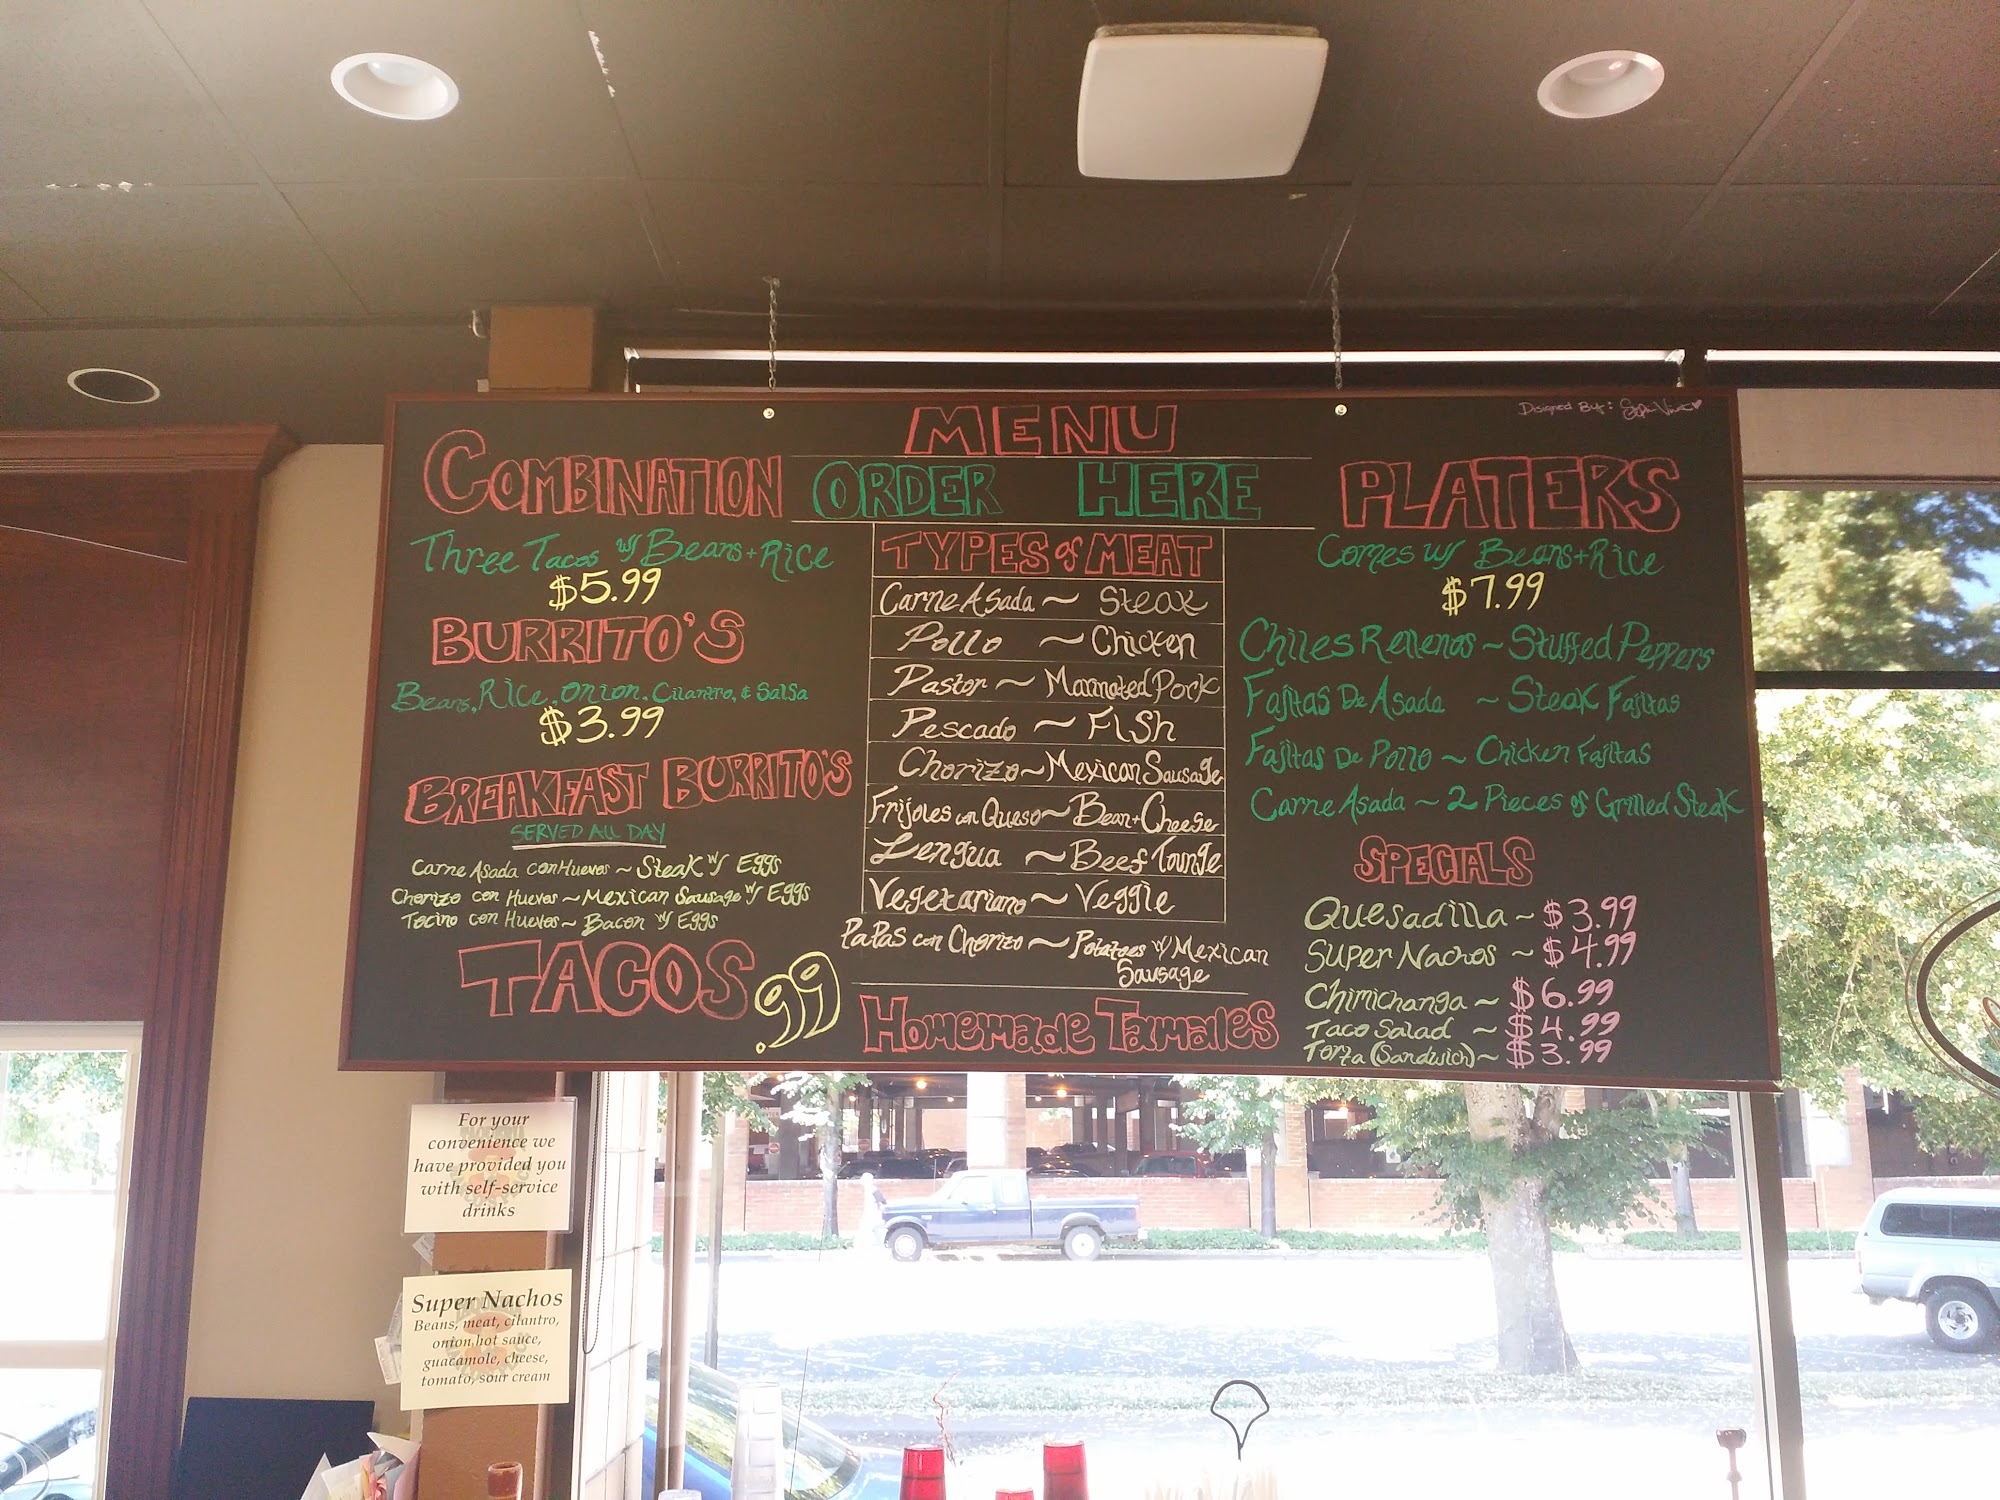 MENU
Disigned By:
ORDER HERE
COMBINATION
Three Tacos w/ Beans + Rice
$5.99
BURRITO'S
Beans, Rice, Onion, Cilantro, & Salsa
$3.99
BREAKFAST BURRITO'S
SERVED ALL DAY
Carne Asada con Huevos ~ Steak w/ Eggs
Chorizo con Huevos ~ Mexican Sausage w/ Eggs
Tocino con Huevos ~ Bacon w/ Eggs
TACOS .99
TYPES of MEAT
Carne Asada ~ Steak
Pollo ~ Chicken
Pastor ~ Marinated Pork
Pescado ~ Fish
Chorizo ~ Mexican Sausage
Frijoles con Queso ~ Bean + Cheese
Lengua ~ Beef Tounge
Vegetariano ~ Veggie
Papas con Chorizo ~ Potatoes w/ Mexican
Sausage
Homemade Tamales
PLATERS
Comes w/ Beans + Rice
$7.99
Chiles Rellenos ~ Stuffed Peppers
Fajitas De Asada ~ Steak Fajitas
Fajitas De Pollo ~ Chicken Fajitas
Carne Asada ~ 2 Pieces of Grilled Steak
SPECIALS
Quesadilla ~ $3.99
Super Nachos ~ $4.99
Chimichanga ~ $6.99
Taco Salad ~ $4.99
Torta (Sandwich) ~ $3.99
For your
convenience we
have provided you
with self-service
drinks
Super Nachos
Beans, meat, cilantro,
onion,hot sauce,
guacamole, cheese,
tomato, sour cream